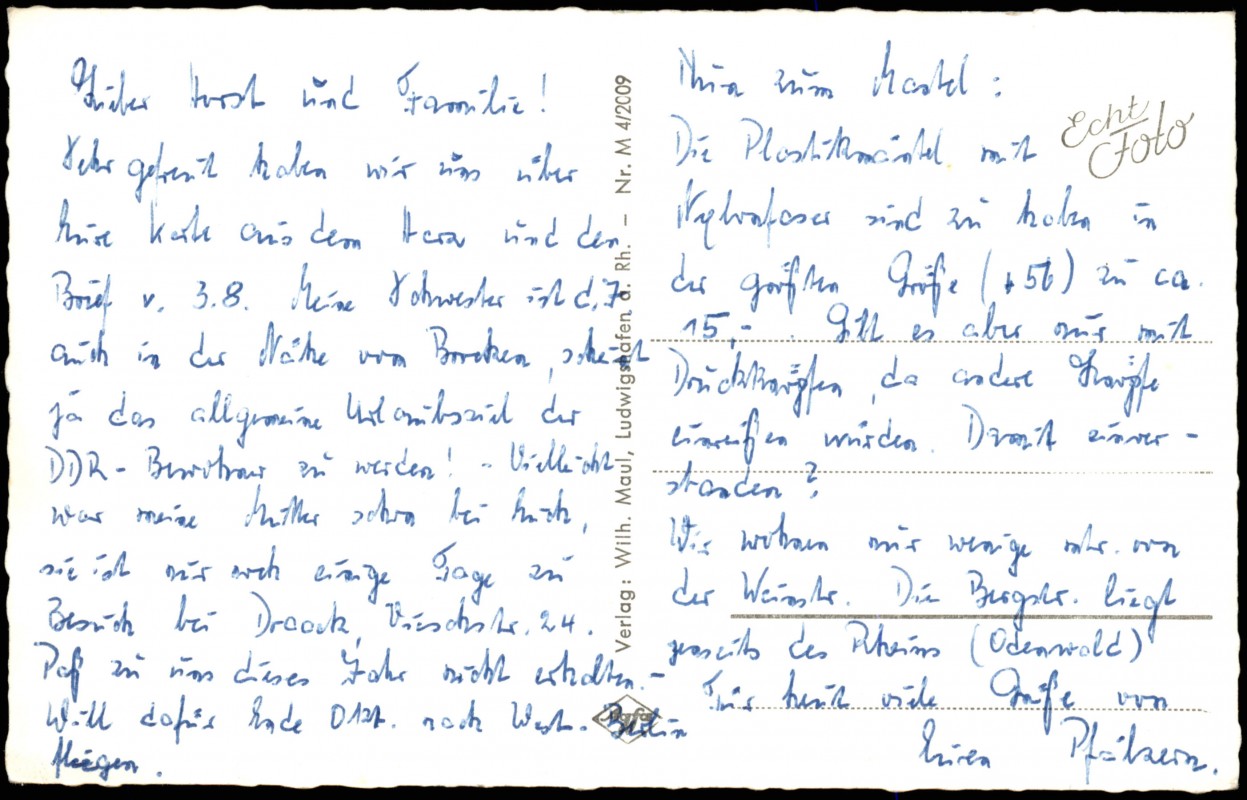 Lieber Horst und Familie!
Sehr gefreut haben wir uns über
Eure Karte aus dem Harz und den
Brief v. 3.8. Meine Schwester ist d. J.
auch in der Nähe vom Brocken, scheint
ja das allgemeine Urlaubsziel der
DDR-Bewohner zu werden! - Vielleicht
war meine Mutter schon bei Euch,
sie ist nur noch einige Tage zu
Besuch bei 24.
Paß zu uns dieses Jahr nicht erhalten. -
Will dafür Ende Okt. nach West-Berlin
fliegen.
Verlag: Wilh. Maul, Ludwigshafen a. Rh. - Nr. M 4/2009
Nun zum Mantel:
Echt
Foto
Die Plastikmäntel mit
Nylonfaser sind zu haben in
der größten Größe (56) zu ca.
15,-. Gibt es aber nur mit
Druckknöpfen, da andere Knöpfe
einreißen würden. Damit einver-
standen?
Wir wohnen nur wenige von
der Weinstr. Die Bergstr. liegt
jenseits des Rheins (Odenwald)
Für heut viele Grüße von
Euren Pfälzern.